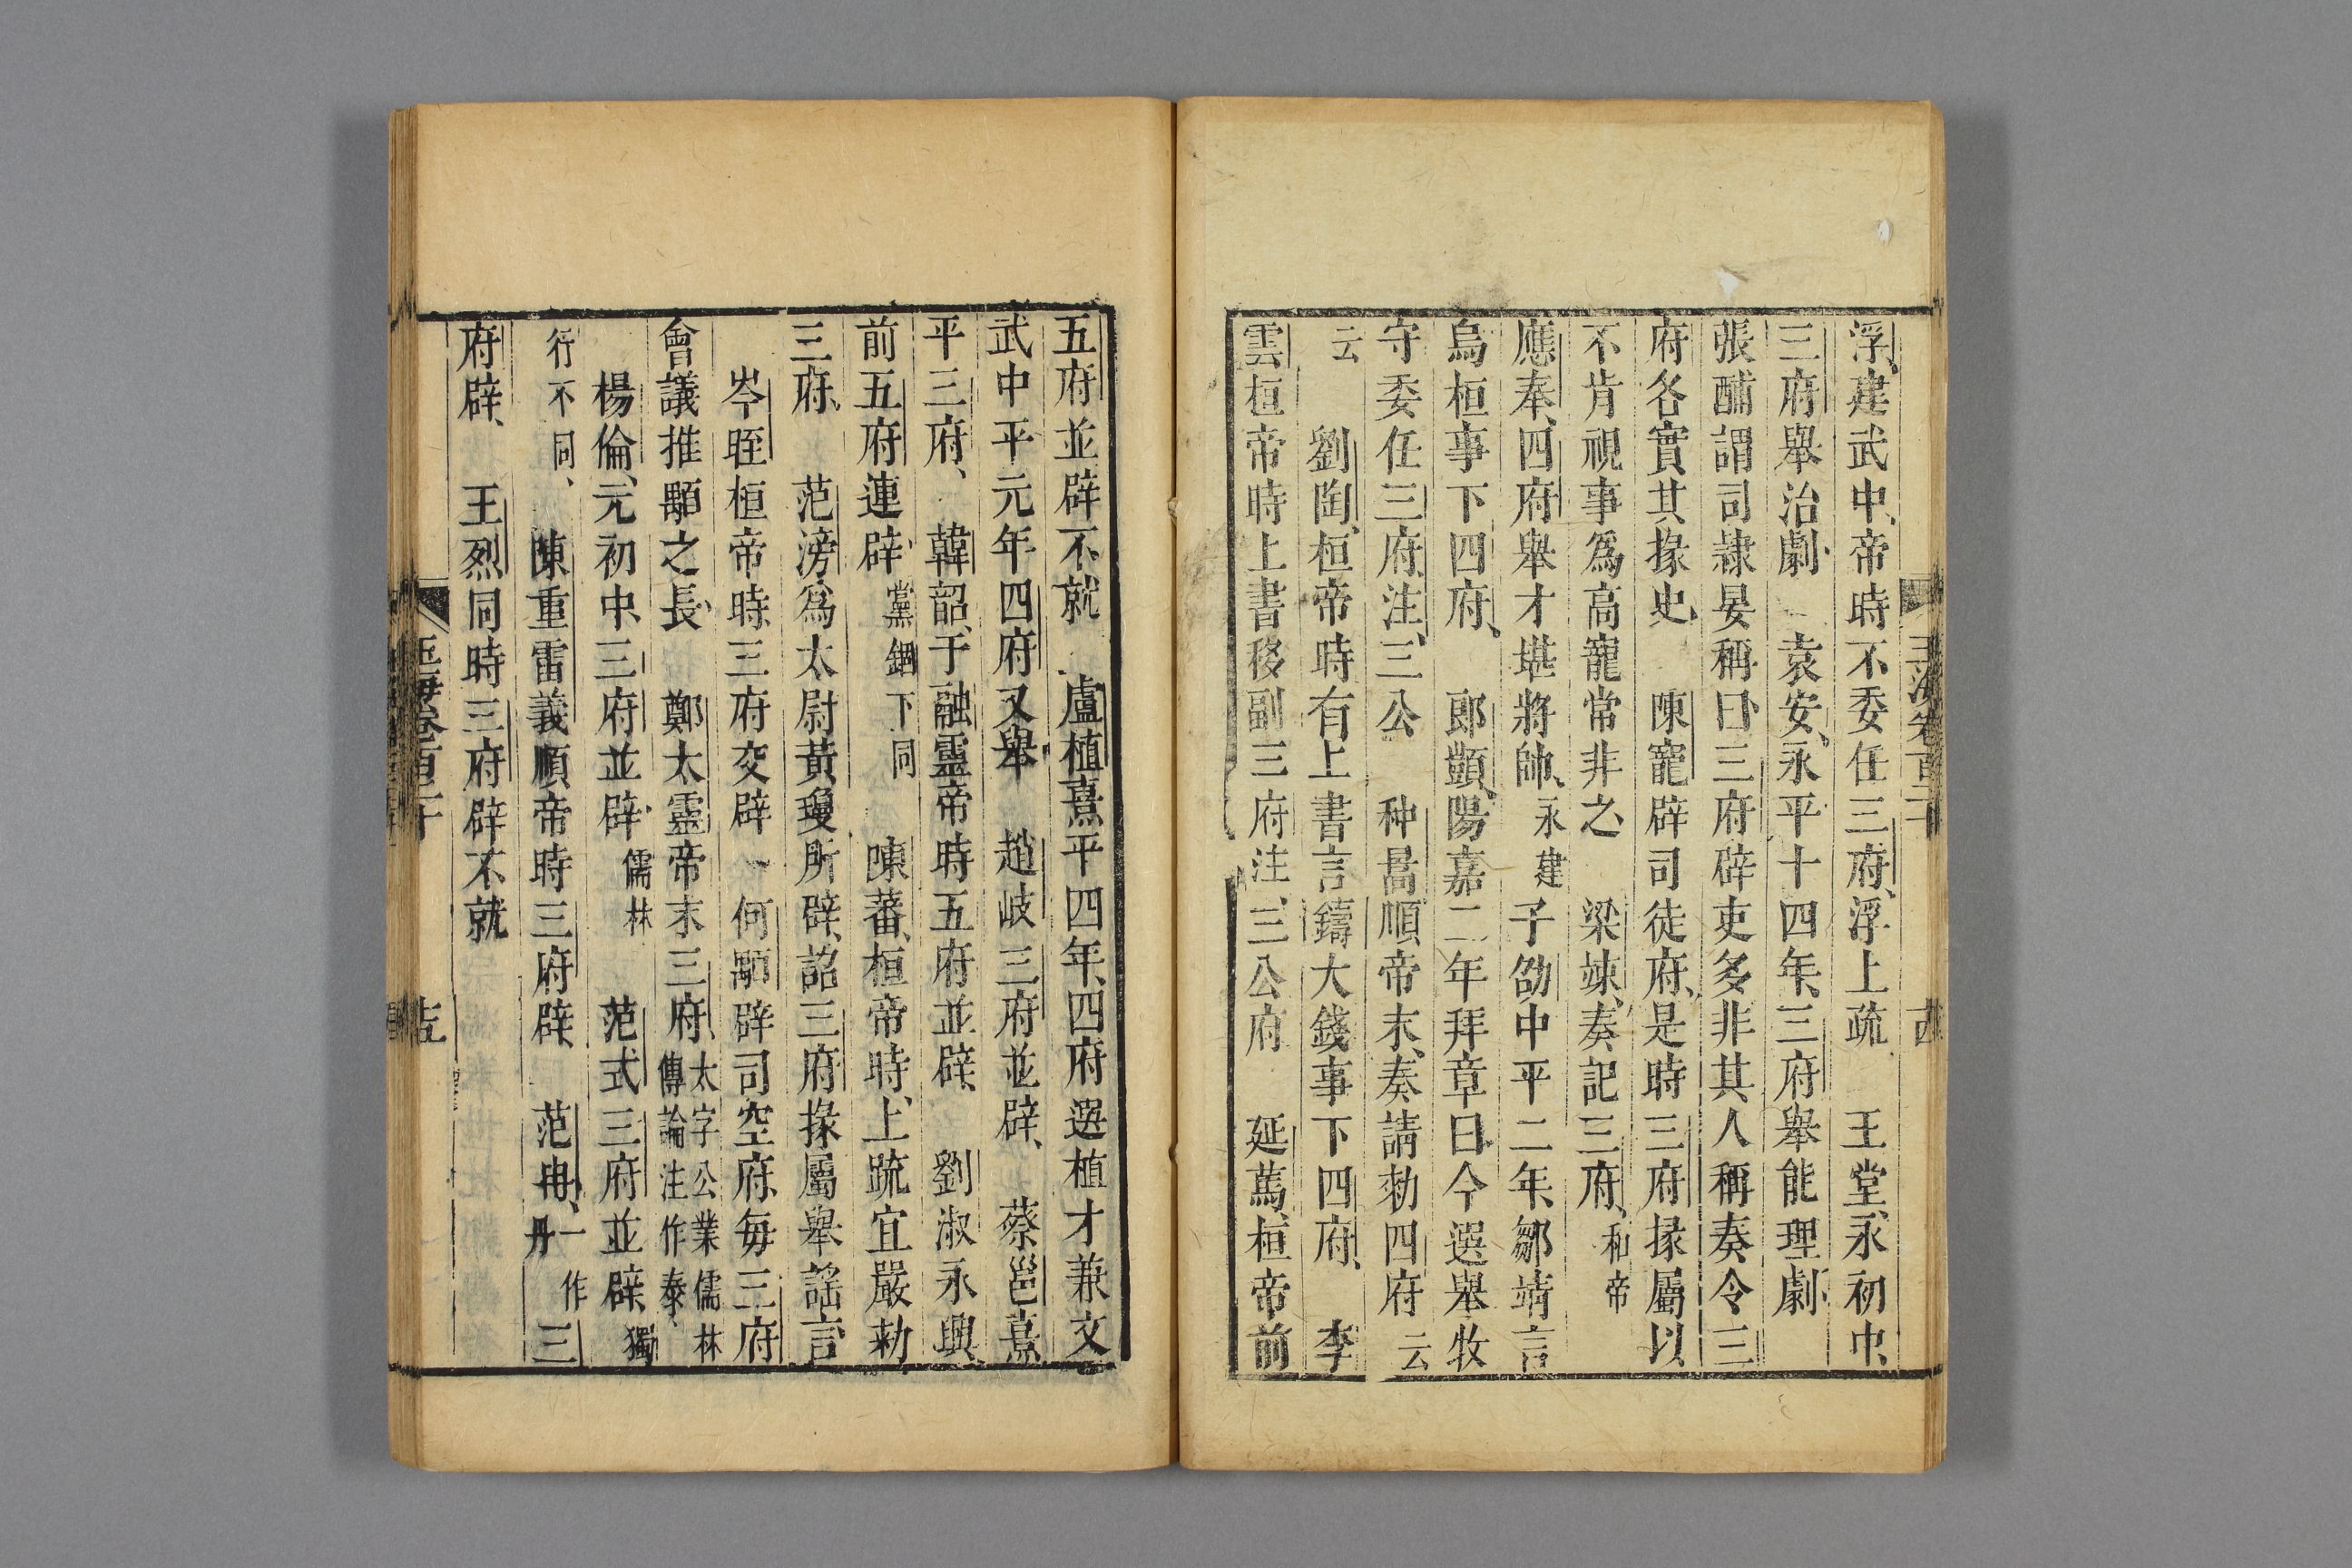 浮建武中帝時不委任三府浮上疏　王堂永初中
三府舉治劇　袁安永平十四年三府舉能理劇
張酺謂司隸晏稱曰三府辟吏多非其人稱奏令三
府各實其掾史　陳寵辟司徒府是時三府掾屬以
不肯視事爲高寵常非之　梁竦奏記三府和帝
應奉四府舉才堪將帥永建子劭中平二年鄒靖言
烏桓事下四府　郎顗陽嘉二年拜章曰今選舉牧
守委任三府注三公　种暠順帝末奏請勑四府云
云　劉陶桓帝時有上書言鑄大錢事下四府　李
雲桓帝時上書移副三府注三公府　延篤桓帝前
五府並辟不就　盧植熹平四年四府選植才兼文
武中平元年四府又舉　趙岐三府並辟　蔡邕熹
平三府　韓韶子融靈帝時五府並辟　劉淑永興
前五府連辟黨錮下同　陳蕃桓帝時上疏宜嚴勑
三府　范滂爲太尉黃瓊所辟詔三府掾屬舉謠言
岑晊桓帝時三府交辟　何顒辟司空府每三府
會議推顒之長　鄭太靈帝末三府太字公業儒林傳論注作泰
楊倫元初中三府並辟儒林　范式三府並辟獨
行不同　陳重雷義順帝時三府辟　范冉一作丹三
府辟　王烈同時三府辟不就
玉海卷百二十